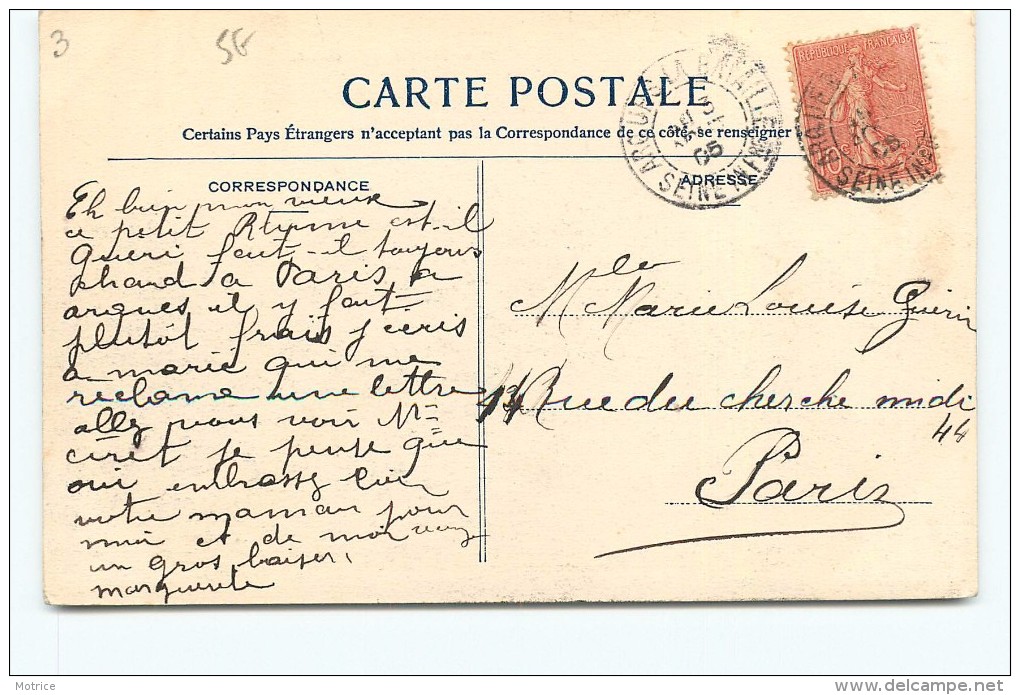 3
5€
CARTE POSTALE
Certains Pays Étrangers n'acceptant pas la Correspondance de ce côté, se renseigner
RÉPUBLIQUE FRANÇAISE
10c
ARQUES LA BATAILLE
05
SEINE INFRE
SEINE INFRE
CORRESPONDANCE
ADRESSE
Eh bien mon vieux
ce petit Rhume est-il
Gueri fait-il toujours
chaud a Paris a
arques il y fait
plutôt frais j'ecris
a marie qui me
reclame une lettre
allez vous voir Mme
ciret je pense que
oui embrassez bien
votre maman pour
moi et de moi
un gros baiser
marguerite
Mlle Marie Louise Guerin
Rue du cherche midi
44
Paris
Motrice
delcampe.net